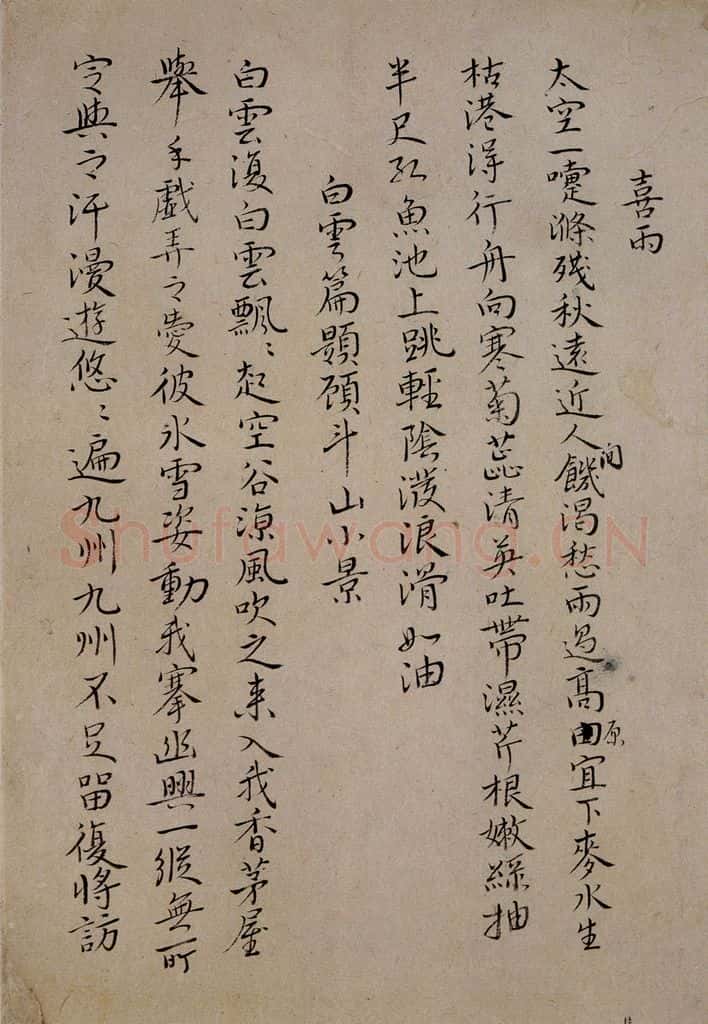 喜雨
太空一嚏滌殘秋遠近人间饑渴愁雨過高原宜下麥水生
枯港得行舟向寒菊蕊清英吐帶濕芹根嫩綠抽
半尺紅魚池上跳輕陰潑浪滑如油
白雲篇題顧斗山小景
白雲復白雲飄〻起空谷涼風吹之來入我香茅屋
舉手戲弄之愛彼冰雪姿動我搴幽興一縱無所
定與之汗漫遊悠〻遍九州九州不足留復將訪
Shufawang.CN